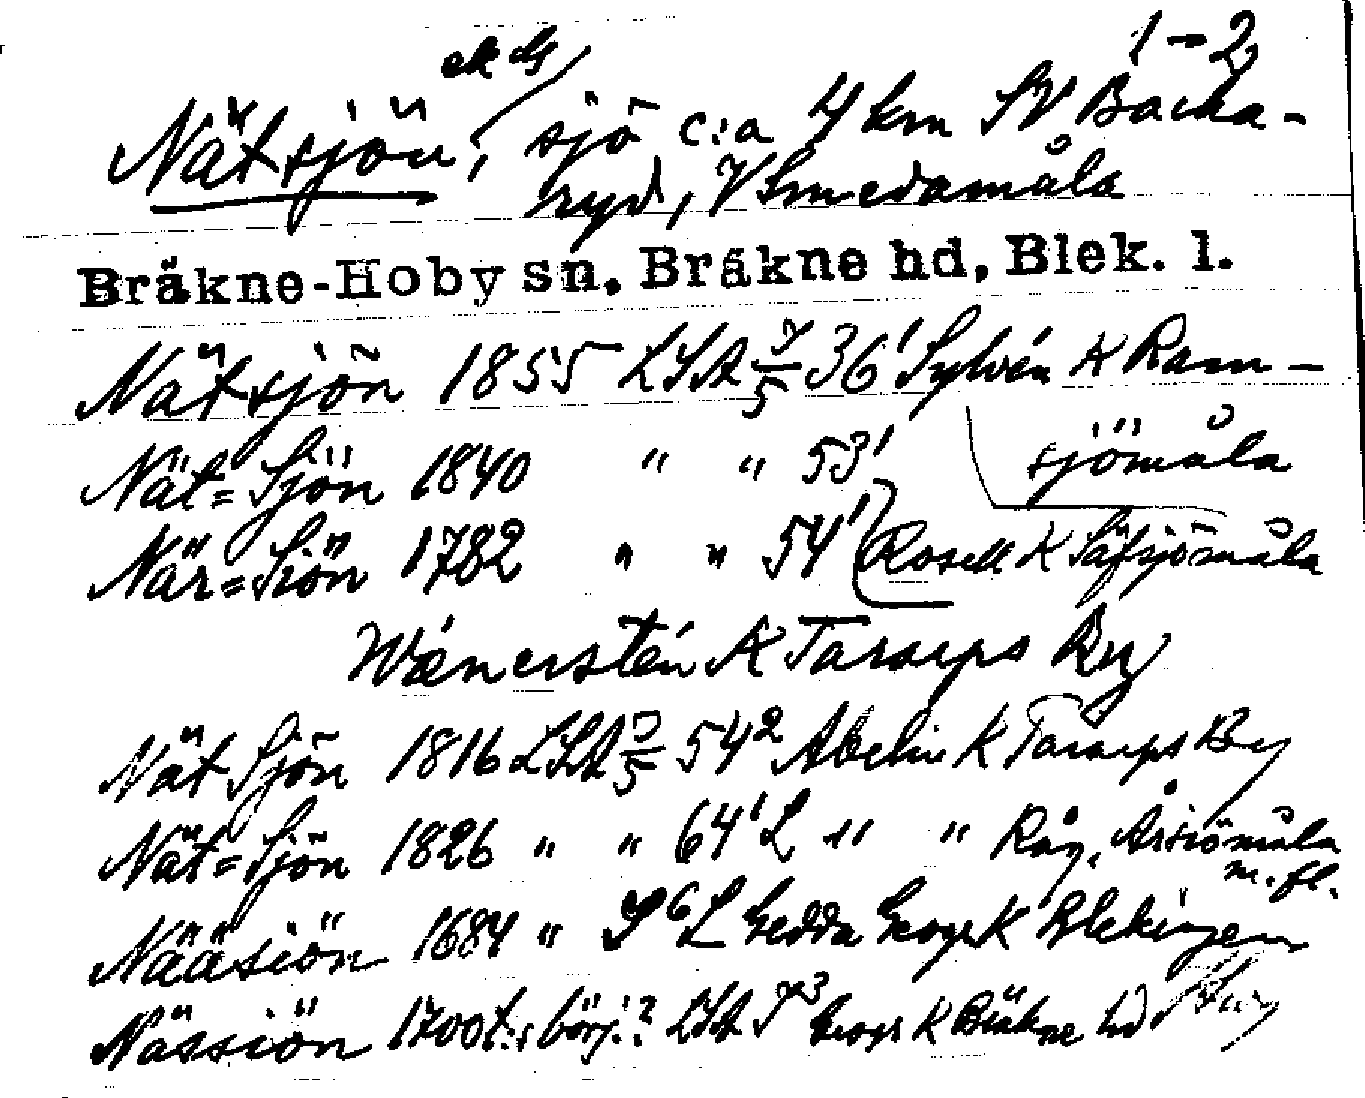 1-2
Nätsjön, sjö c:a 4 km SV Backa-
ryd, V Smedamåla
Bräkne-Hoby sn. Bräkne hd, Blek. l.
Nätsjön 1855 LSA 36¹ Sylvén K Ram-
sjömåla
Nät=Sjön 1840 " " 53¹
När=Siön 1782 " " 54¹ Rosell K Säfsjömåla
Wænerstén K Tararps By
Nät Sjön 1816 LSA 54² Abelin K Tararps By
Nät=Sjön 1826 " " 64¹ L " " Råg. Årsiömåla
m.fl.
Nääsiön 1684 " 6 L Gedda Geogr K Blekingen
Nässiön 1700t:s börj.? LSA 3 Geogr K Bräkne hd